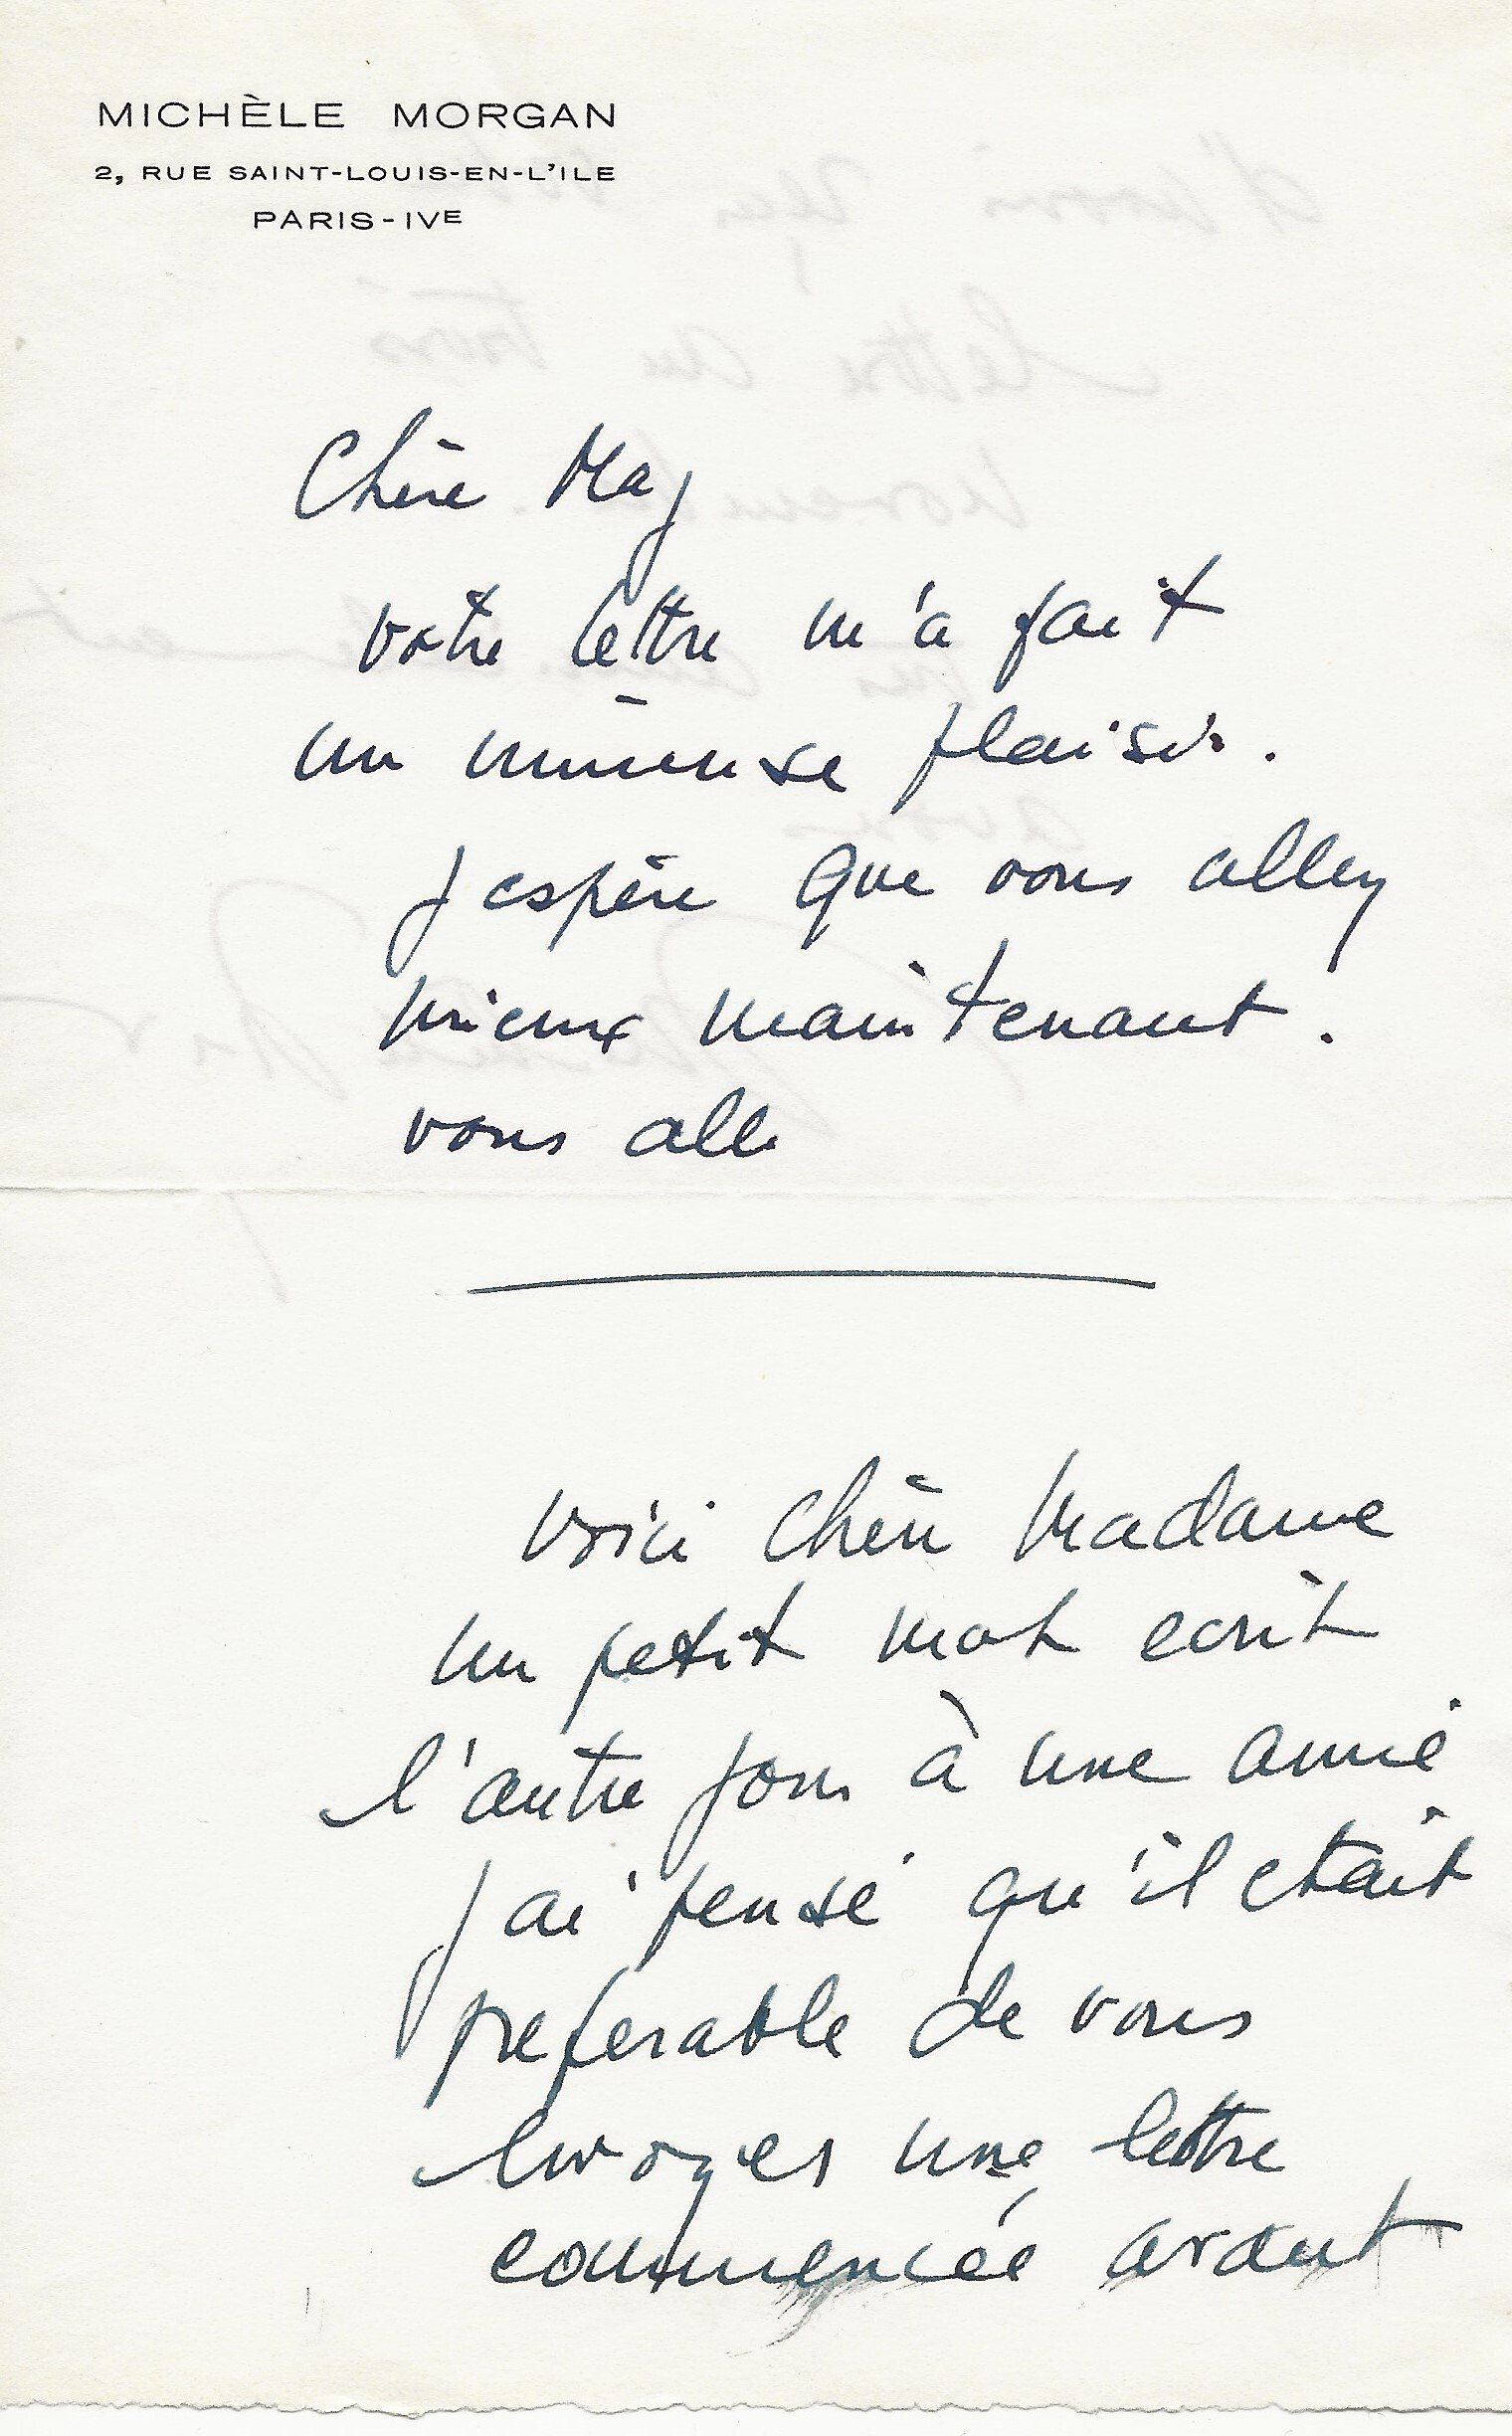 MICHÈLE MORGAN
2, RUE SAINT-LOUIS-EN-L'ILE
PARIS-IVE
Chère May
votre lettre m'a fait
un immense plaisir.
J espère que vous allez
mieux maintenant.
vous alle
Voici Chère Madame
un petit mot ecrit
l'autre jour à une amie
J ai pensé qu'il etait
preferable de vous
envoyer une lettre
commencée avant